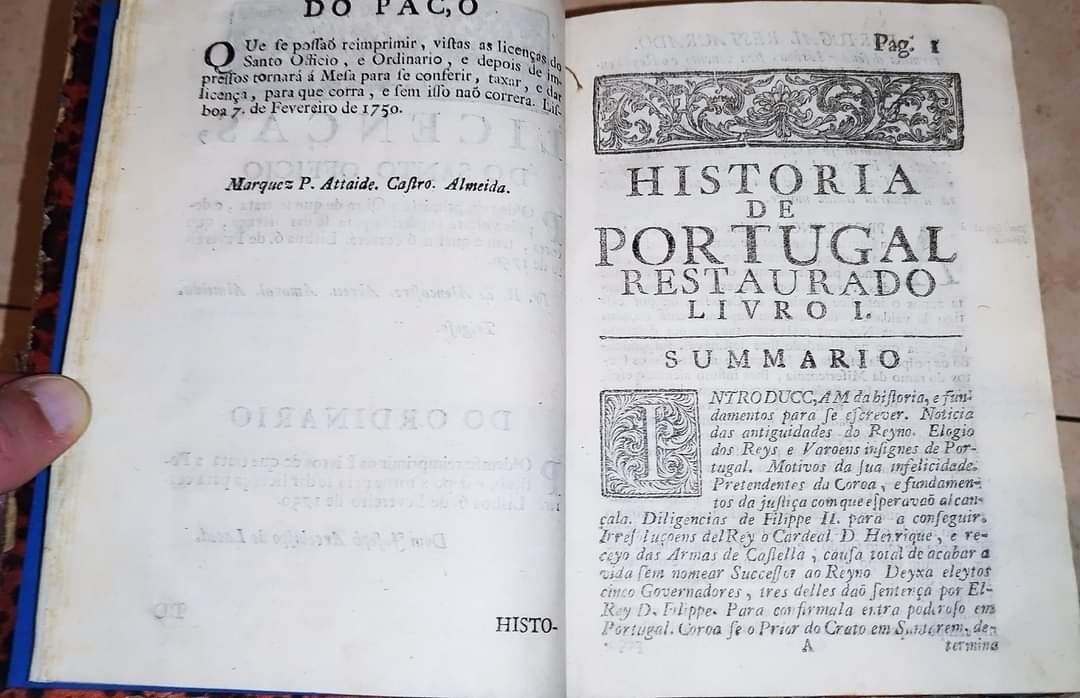 DO PAC,O
QUe ſe poſſaõ reimprimir, viſtas as licenças do
Santo Officio, e Ordinario, e depois de im-
preſſos tornará á Meſa para ſe conferir, taxar, e dar
licença, para que corra, e ſem iſſo naõ correra. Lis-
boa 7. de Fevereiro de 1750.
Marquez P. Attaide. Caſtro. Almeida.
HISTO-
Pag. 1
HISTORIA
DE
PORTUGAL
RESTAURADO
LIVRO I.
SUMMARIO
INTRODUCC,AM da hiſtoria, e fun-
damentos para ſe eſcrever. Noticia
das antiguidades do Reyno. Elogio
dos Reys e Varoens inſignes de Por-
tugal. Motivos da ſua infelicidade.
Pretendentes da Coroa, e fundamen-
tos da juſtiça com que eſperavaõ alcan-
çala. Diligencias de Filippe II. para a conſeguir.
Irreſoluçoens delRey o Cardeal D. Henrique, e re-
ceyo das Armas de Caſtella, cauſa total de acabar a
vida ſem nomear Succeſſor ao Reyno Deyxa eleytos
cinco Governadores, tres delles daõ ſentença por El-
Rey D. Filippe. Para confirmala entra poderoſo em
Portugal. Coroa ſe o Prior do Crato em Santarem, de-
A termina